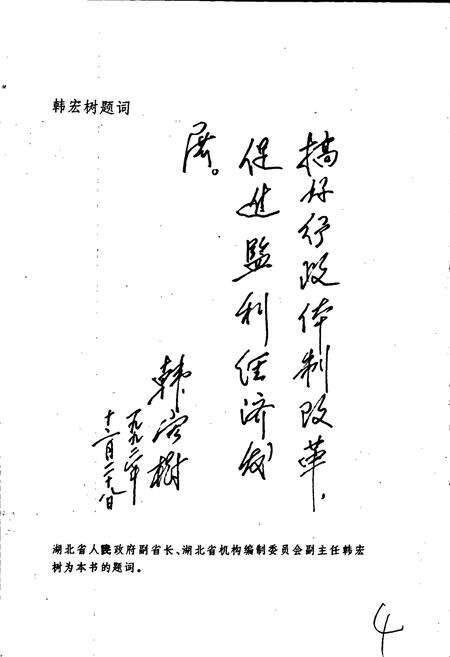 韩宏树题词
搞好行政体制改革，
促进監利经济发
展。
韩宏树
一九九二年
十二月二十九日
湖北省人民政府副省长、湖北省机构编制委员会副主任韩宏
树为本书的题词。
4